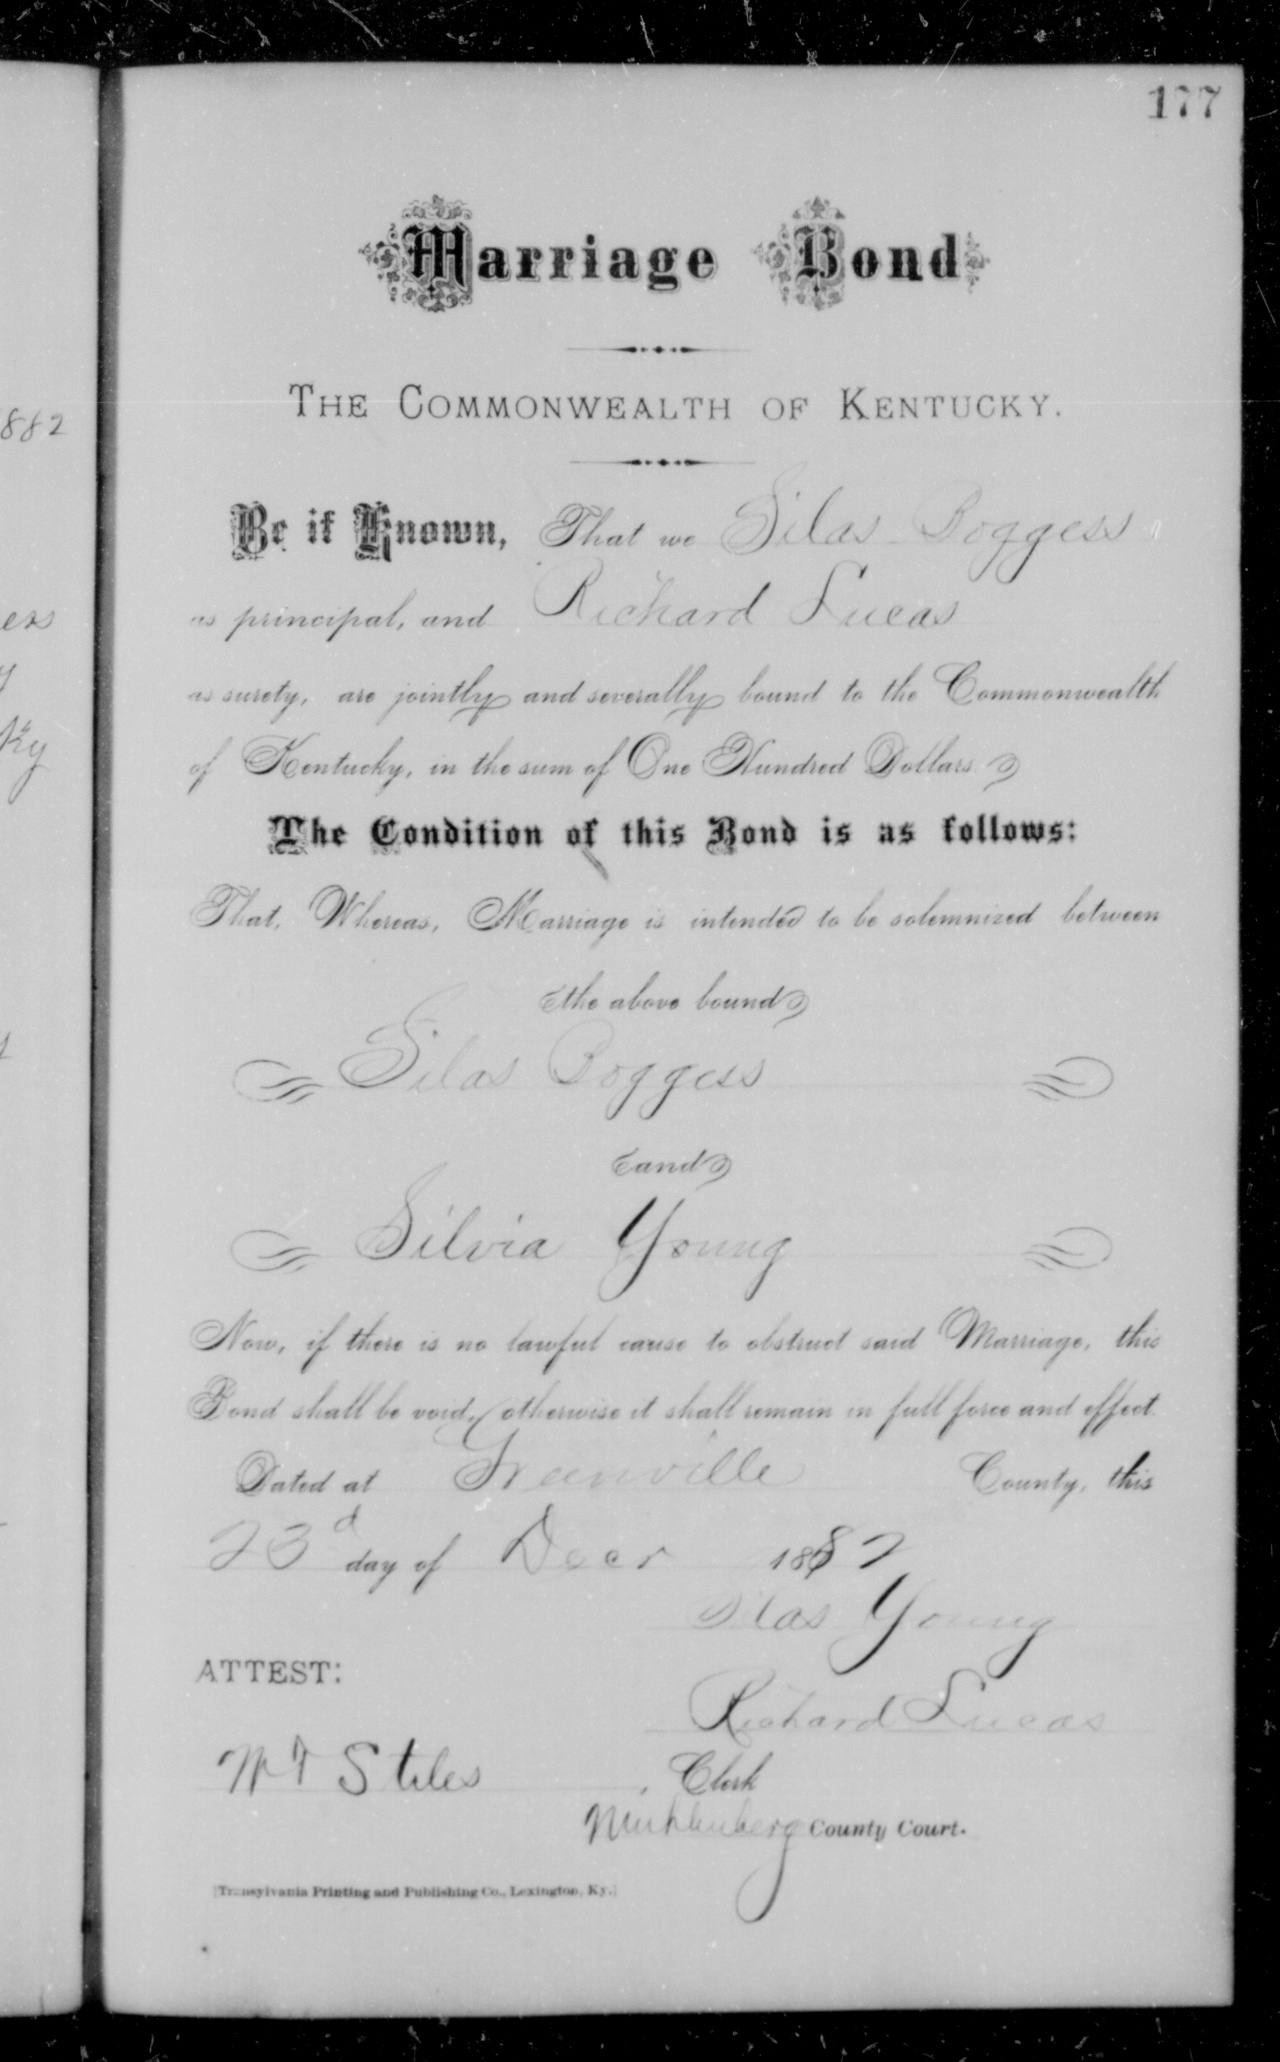 177
Marriage Bond
THE COMMONWEALTH OF KENTUCKY.
882
Be it Known, That we Silas Boggess
as principal, and Richard Lucas
ers
as surety, are jointly and severally bound to the Commonwealth
y
ky
of Kentucky, in the sum of One Hundred Dollars.
The Condition of this Bond is as follows:
That, Whereas, Marriage is intended to be solemnized between
the above bound
Silas Boggess
and
Silvia Young
Now, if there is no lawful cause to obstruct said Marriage, this
Bond shall be void, otherwise it shall remain in full force and effect.
Dated at Greenville County, this
23d day of Decr 1882
Silas Young
ATTEST:
Richard Lucas
WT Stiles, Clerk
Muhlenberg County Court.
[Transylvania Printing and Publishing Co., Lexington, Ky.]